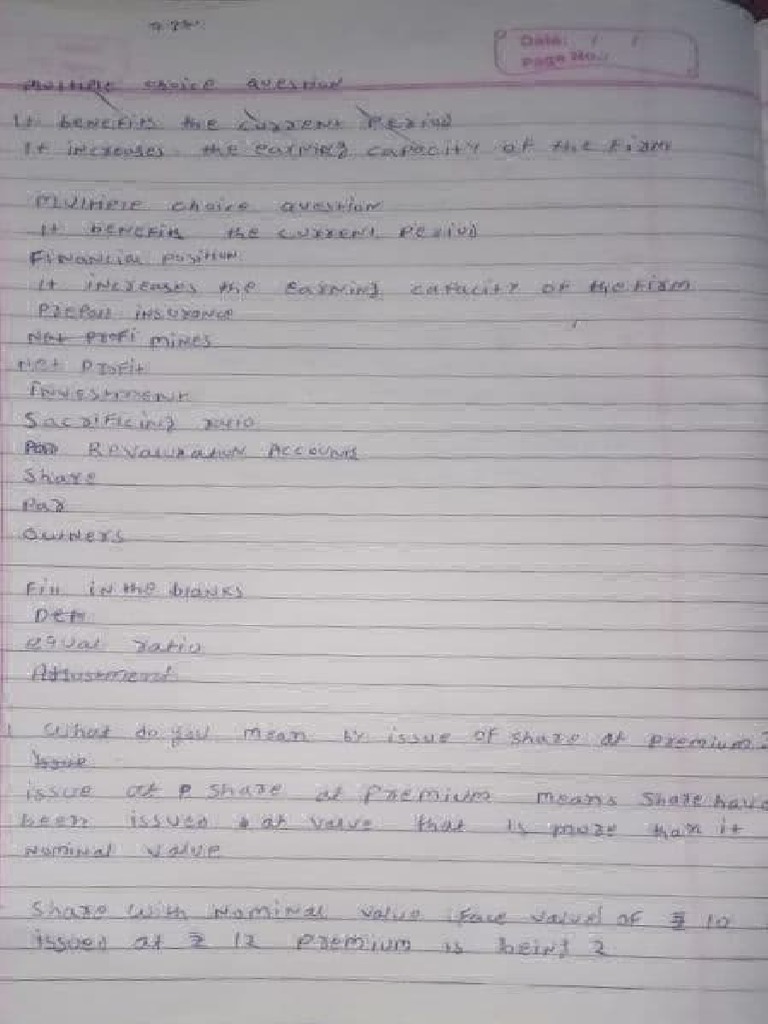 Date: / /
Page No.:
Multiple choice question
It benefits the current Period
It increases the earning capacity of the Firm
Multiple choice question
It benefits the current Period
Financial position
It increases the earning capacity of the Firm
Prepaid insurance
Net Profi mines
Net Profit
Investment
Sacrificing ratio
Revaluation Accounts
Share
Par
Owners
Fill in the blanks
equal ratio
Adjustment
What do you mean by issue of share at premium?
Issue
issue at share at Premium means share have
been issued at value that is more than it
nominal value
Share with Nominal value face value of ₹ 10
issued at ₹ 12 Premium is being 2